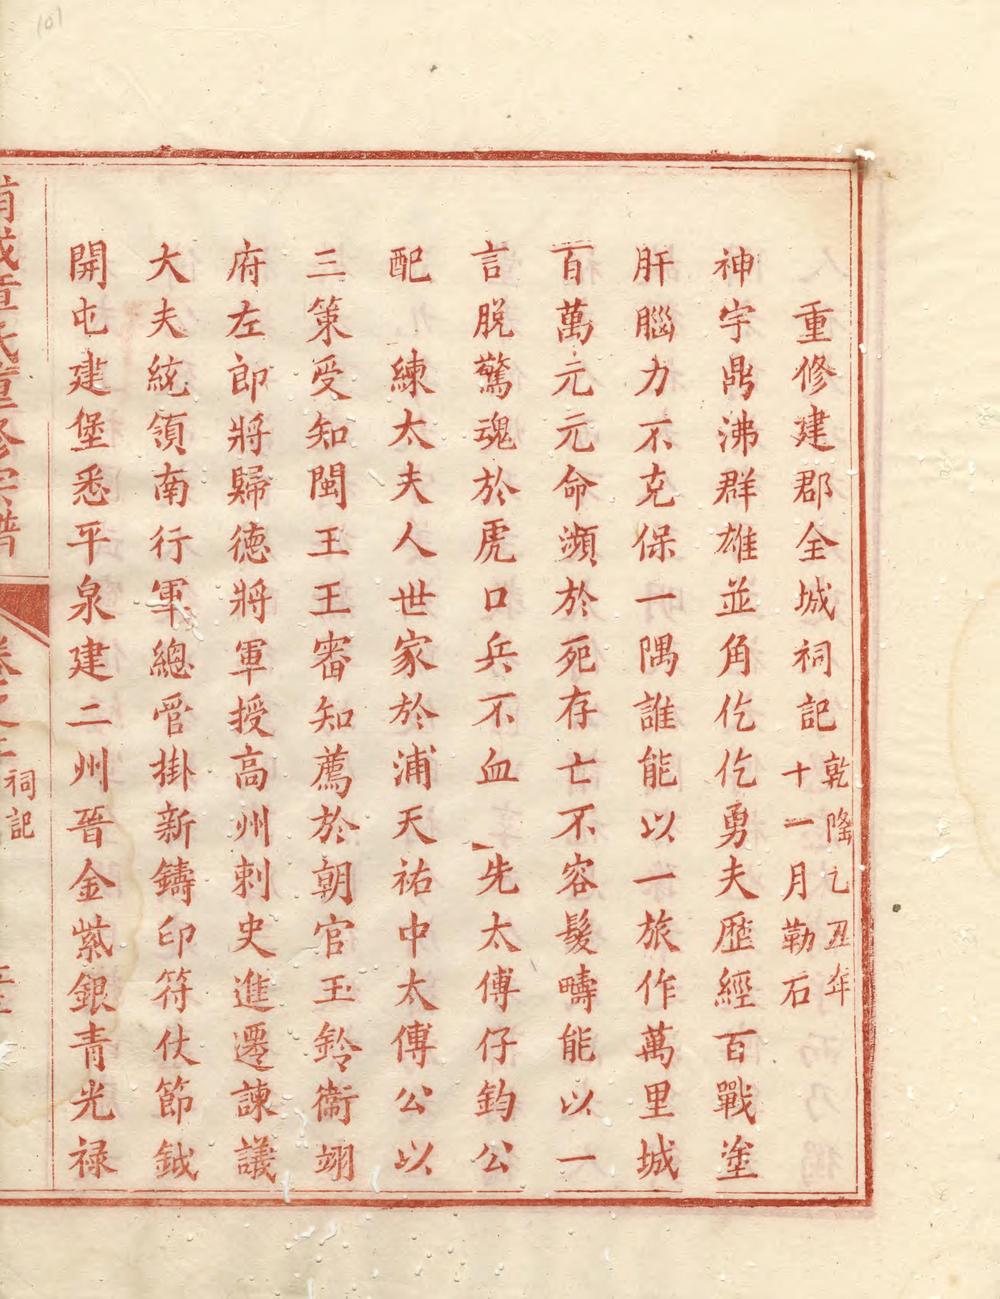 重修建郡全城祠記 乾隆乙丑年十一月勒石
神宇鼎沸群雄並角仡仡勇夫歷經百戰塗
肝腦力不克保一隅誰能以一旅作萬里城
百萬元元命瀕於死存亡不容髮疇能以一
言脱驚魂於虎口兵不血 先太傅仔鈞公
配 練太夫人世家於浦天祐中太傅公以
三策受知閩王王審知薦於朝官玉鈴衞翊
府左郎將歸德將軍授高州刺史進遷諫議
大夫統領南行軍總管掛新鑄印符仗節鉞
開屯建堡悉平泉建二州晉金紫銀青光禄
章氏重修宗譜
卷之
祠記
101